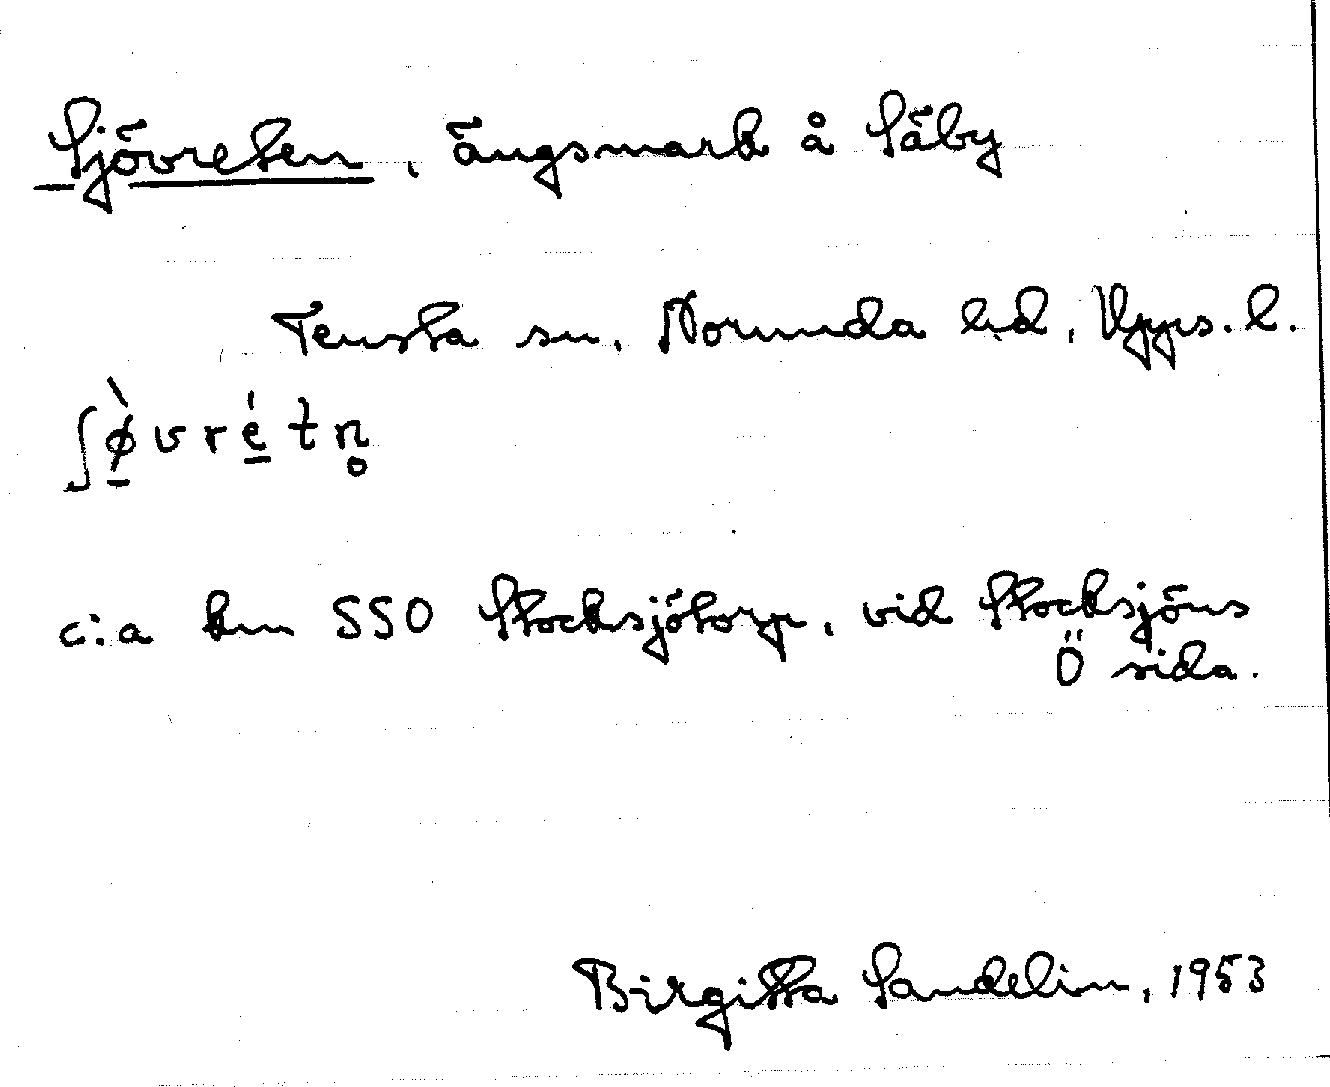 Sjövreten, ängsmark å Säby
Tensta sn, Norunda hd, Upps. l.
ʃø̲̀vre̲̍tn̥
c:a km SSO Stocksjötorp, vid Stocksjöns
Ö sida.
Birgitta Sandelin, 1953